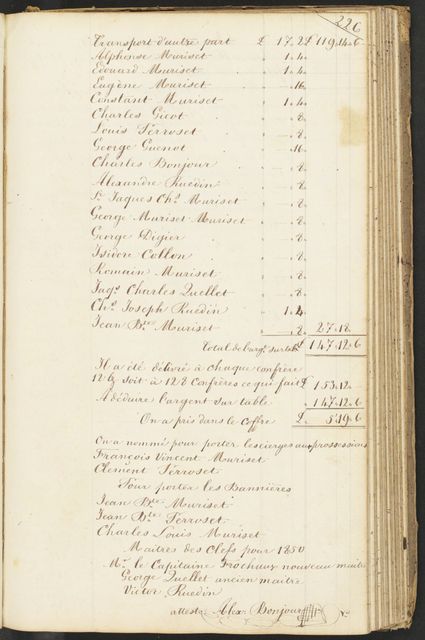 226
Transport d'autre part £ 17.2 £ 119.14.6
Alphonse Muriset " 1.4.
Edouard Muriset " 1.4.
Eugène Muriset " .16.
Constant Muriset " 1.4.
Charles Gicot " .8.
Louis Ferroset " .8.
George Guenot " .16.
Charles Bonjour " .8.
Alexandre Ruedin " .8.
Jaques Chs Muriset " .8.
George Muriset Muriset " .8.
George Digier " .8.
Isidore Collon " .8.
Romain Muriset " .8.
Jaqs Charles Quellet " .8.
Chs Joseph Ruedin " 1.4.
Jean Bte Muriset " .8. 27.18.
Total de l'argt sur table £ 147.12.6
Il a été délivré à chaque confrère
12 bz soit à 128 Confrères ce qui fait £ 153.12.
A déduire l'argent sur table " 147.12.6
On a pris dans le Coffre £ 5.19.6
On a nommé pour porter les cierges aux prossessions
François Vincent Muriset
Clément Ferroset
Pour porter les Bannières
Jean Bte Muriset
Jean Bte Ferroset
Charles Louis Muriset
Maitres des Clefs pour 1850
Mr le Capitaine Frochaux nouveau maitre
George Quellet ancien maitre
Victor Ruedin
atteste Alex. Bonjour